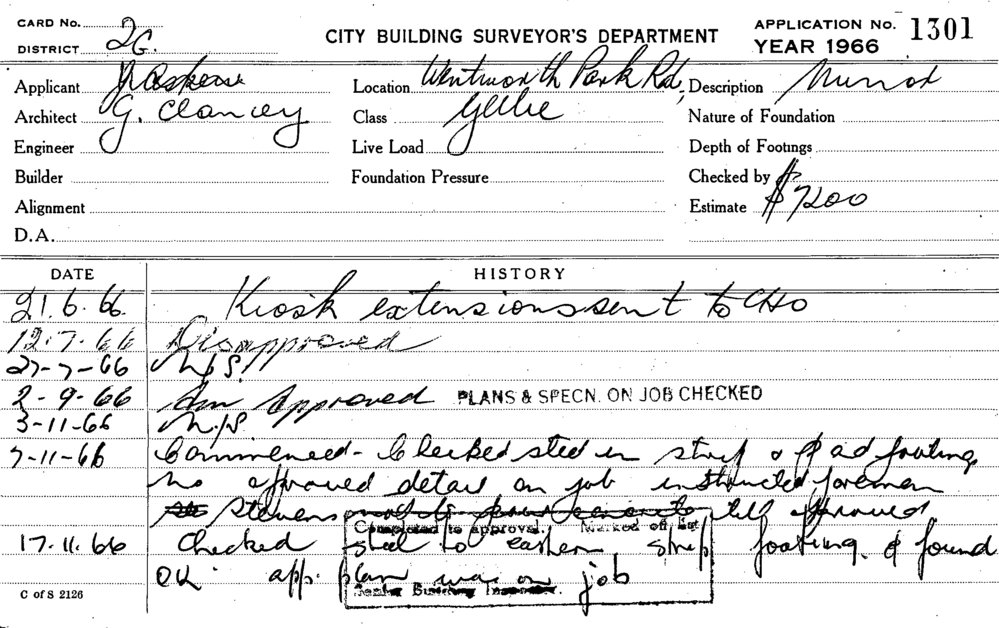 CARD No.
DISTRICT 2G.
CITY BUILDING SURVEYOR'S DEPARTMENT
APPLICATION No. 1301
YEAR 1966
Applicant
Location Wentworth Park Rd,
Description
Architect G. Clancey
Class Glebe
Nature of Foundation
Engineer
Live Load
Depth of Footings
Builder
Foundation Pressure
Checked by
Alignment
Estimate $7200
D.A.
DATE HISTORY
21.6.66 Kiosk extensions sent to CHO
12.7.66 Disapproved
27-7-66 N/S.
2-9-66 Approved PLANS & SPECN. ON JOB CHECKED
3-11-66 N/S
7-11-66 Commenced - Checked steel in strip & pad footing,
no approved detail on job instructed foreman
Stevens not to pour concrete till approved
Completed to approval. Marked off list
17.11.66 Checked steel to eastern strip footing & found
OK. app. plan was on job
Senior Building Inspector.
C of S 2126